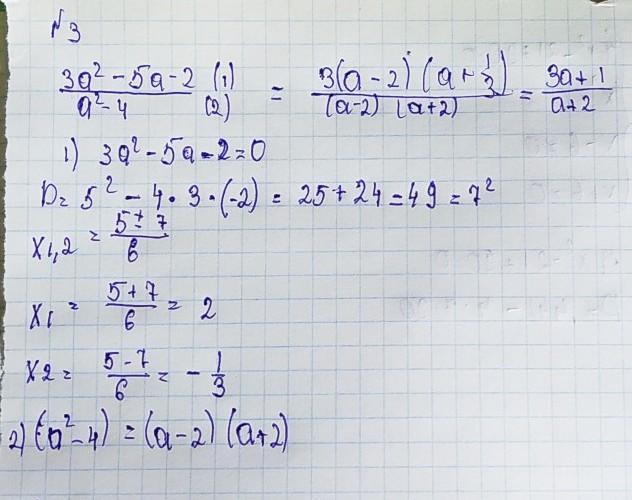 №3
3a² - 5a - 2 (1) / a² - 4 (2) = 3(a - 2) (a + 1/3) / (a-2) (a+2) = 3a + 1 / a + 2
1) 3a² - 5a - 2 = 0
D = 5² - 4 · 3 · (-2) = 25 + 24 = 49 = 7²
x1,2 = 5 ± 7 / 6
x1 = 5 + 7 / 6 = 2
x2 = 5 - 7 / 6 = - 1/3
2) (a² - 4) = (a - 2) (a + 2)